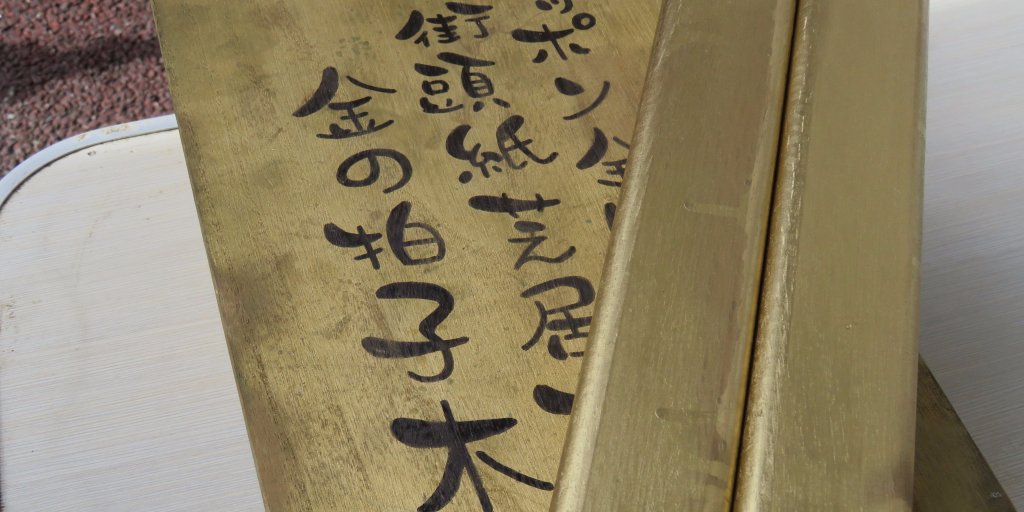 ッポン
街頭紙芝居
金の拍子木